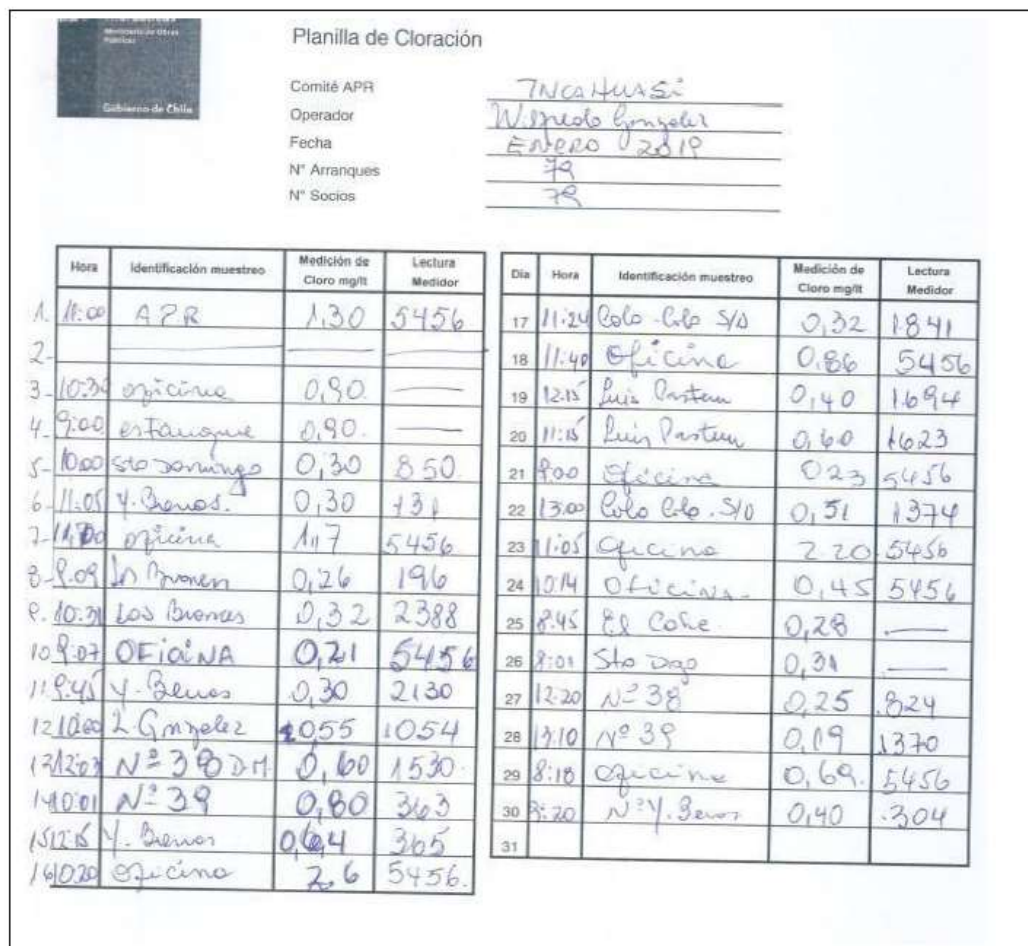 Ministerio de Obras
Públicas
Gobierno de Chile
Planilla de Cloración
Comité APR INCAHUASi
Operador Wilfredo Gonzalez
Fecha ENERO 2019
N° Arranques 79
N° Socios 79
Hora Identificación muestreo Medición de Cloro mg/lt Lectura Medidor
1. 11:00 A P R 1,30 5456
2-
3- 10:30 oficina 0,90
4- 9:00 estanque 0,90.
5- 10:00 Sto Domingo 0,30 850.
6- 11:05 Y. 0,30 131
7- oficina 1,17 5456
8- 9:09 0,26 196
9. 10:31 Los 0,32 2388
10 9:07 OFiciNA 0,21 5456
11 9:45 Y. 0,30 2130
12 10:00 L. Gonzalez 055 1054
13 12:03 Nº 38 D.M. 0,60 1530.
14 10:01 Nº 39 0,80 363
15 12:15 Y. 365
16 10:20 oficina 2,6 5456.
Día Hora Identificación muestreo Medición de Cloro mg/lt Lectura Medidor
17 11:24 Colo-Colo S/D 0,32 1841
18 11:40 Oficina 0,86 5456
19 12:15 Luis Pasteur 0,40 1694
20 11:15 Luis Pasteur 0,60 1623
21 9:00 Oficina 023 5456
22 13:00 Colo Colo. S/D 0,51 1374
23 11:05 Oficina 2.20 5456
24 10:14 OficiNA- 0,45 5456
25 8:45 El 0,28
26 8:01 Sto Dgo 0,31
27 12:20 Nº 38 0,25 .824
28 13:10 Nº 39 0,19 1370
29 8:18 oficina 0,69. 5456
30 9:20 Nº Y. 0,40 .304
31